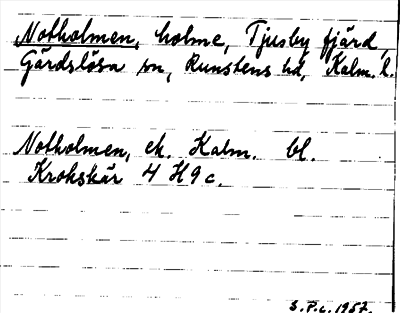 Notholmen, holme, Tjusby fjärd,
Gärdslösa sn, Runstens hd, Kalm. l.
Notholmen, ek. Kalm. bl.
Krokskär 4 H 9 c.
S.P.c. 1957.